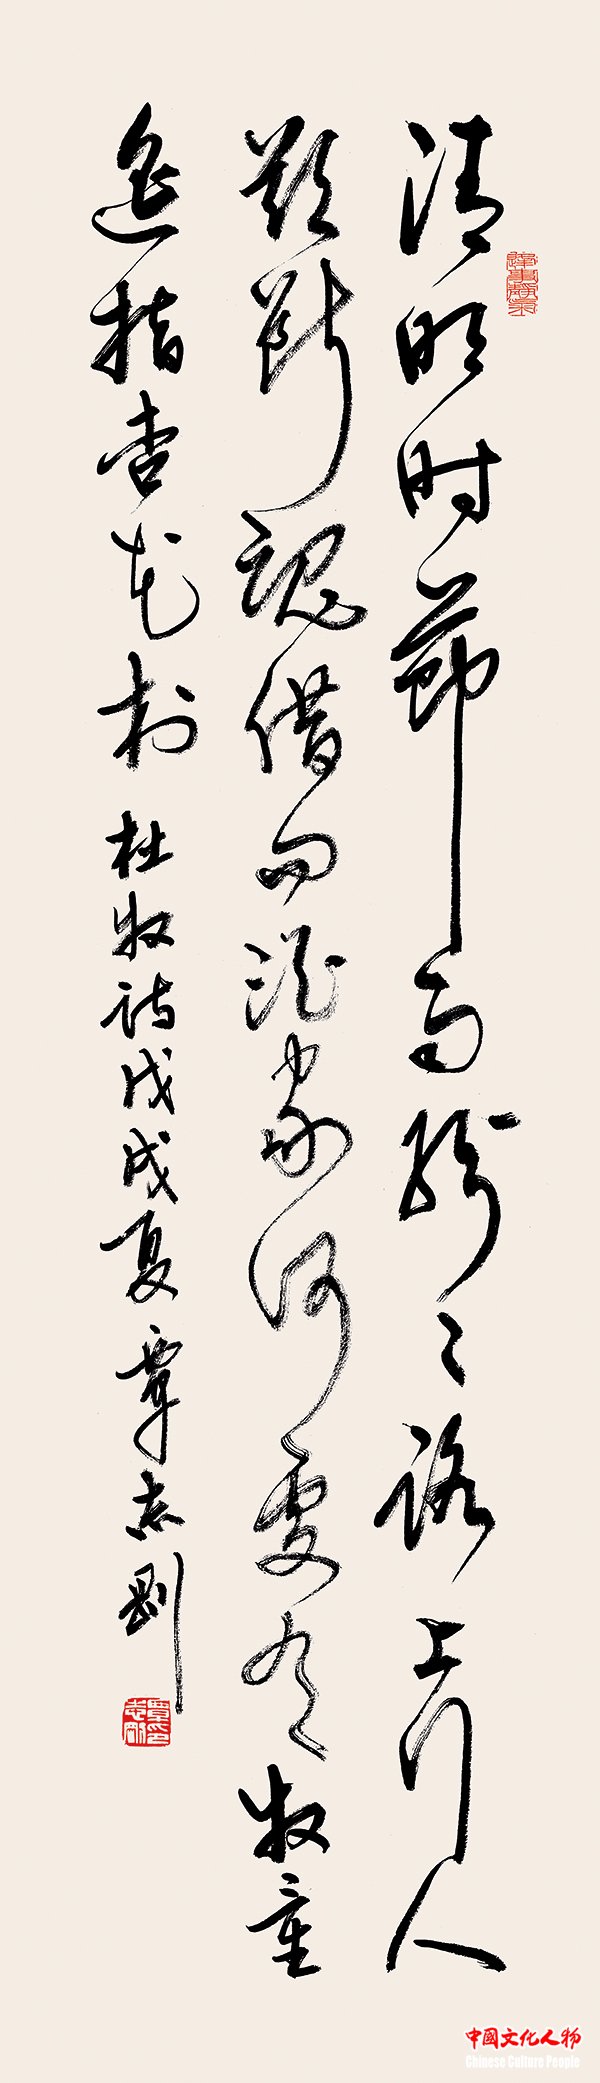 清明时节雨纷〻路上行人
欲断魂借问酒家何处有牧童
遥指杏花村 杜牧诗戊戌夏覃志刚
覃志刚印
中國文化人物
Chinese Culture People